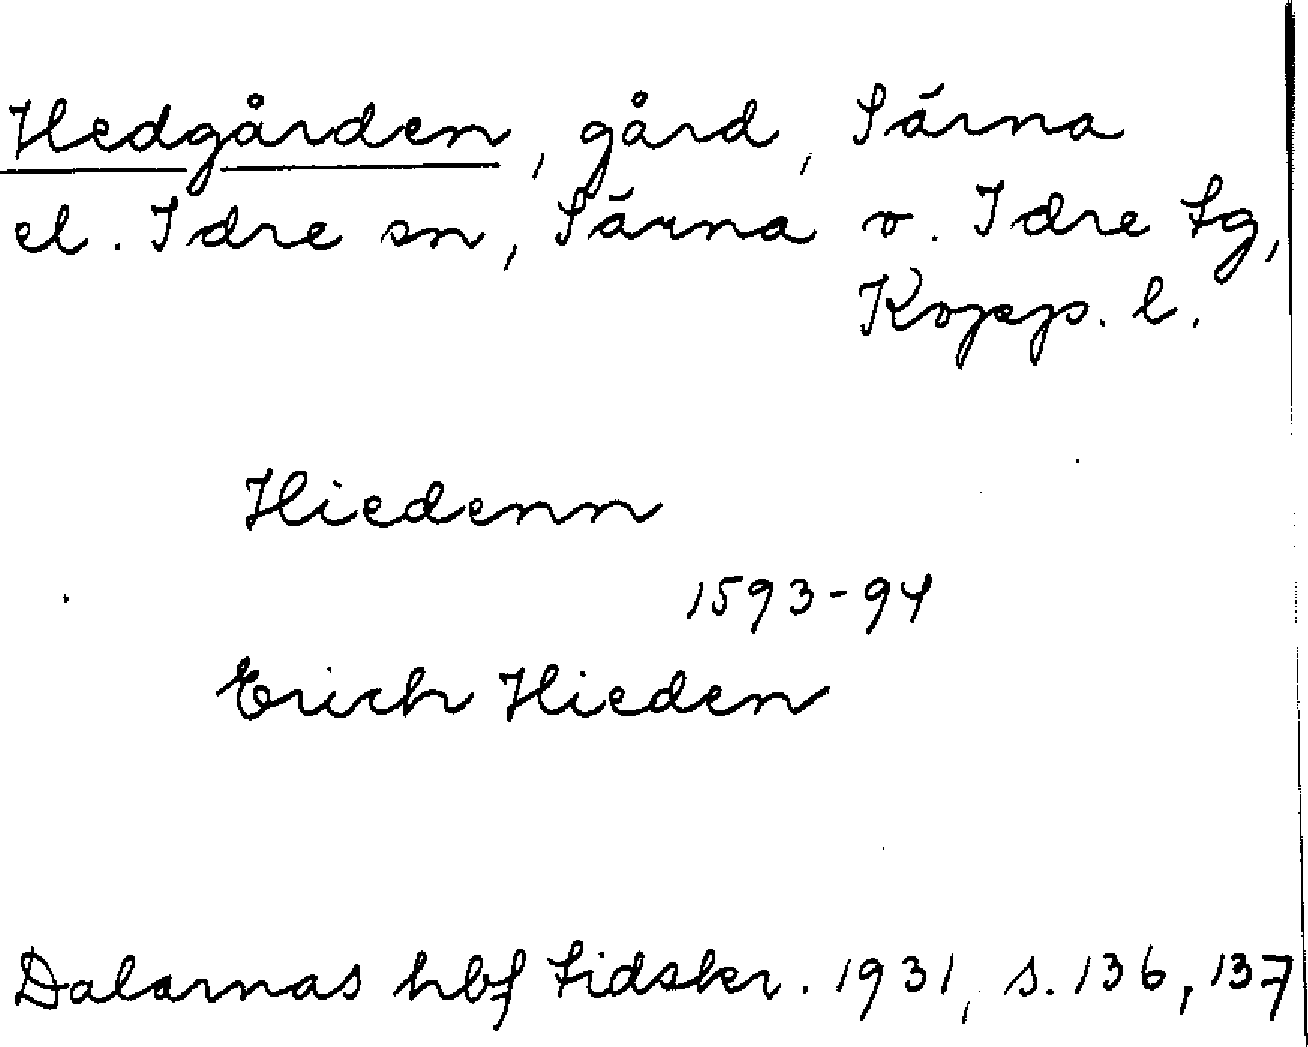 Hedgården, gård, Särna
el. Idre sn, Särna o. Idre tg,
Kopp. l.
Hiedenn
1593-94
Erich Hieden
Dalarnas hbf tidskr. 1931, s. 136, 137